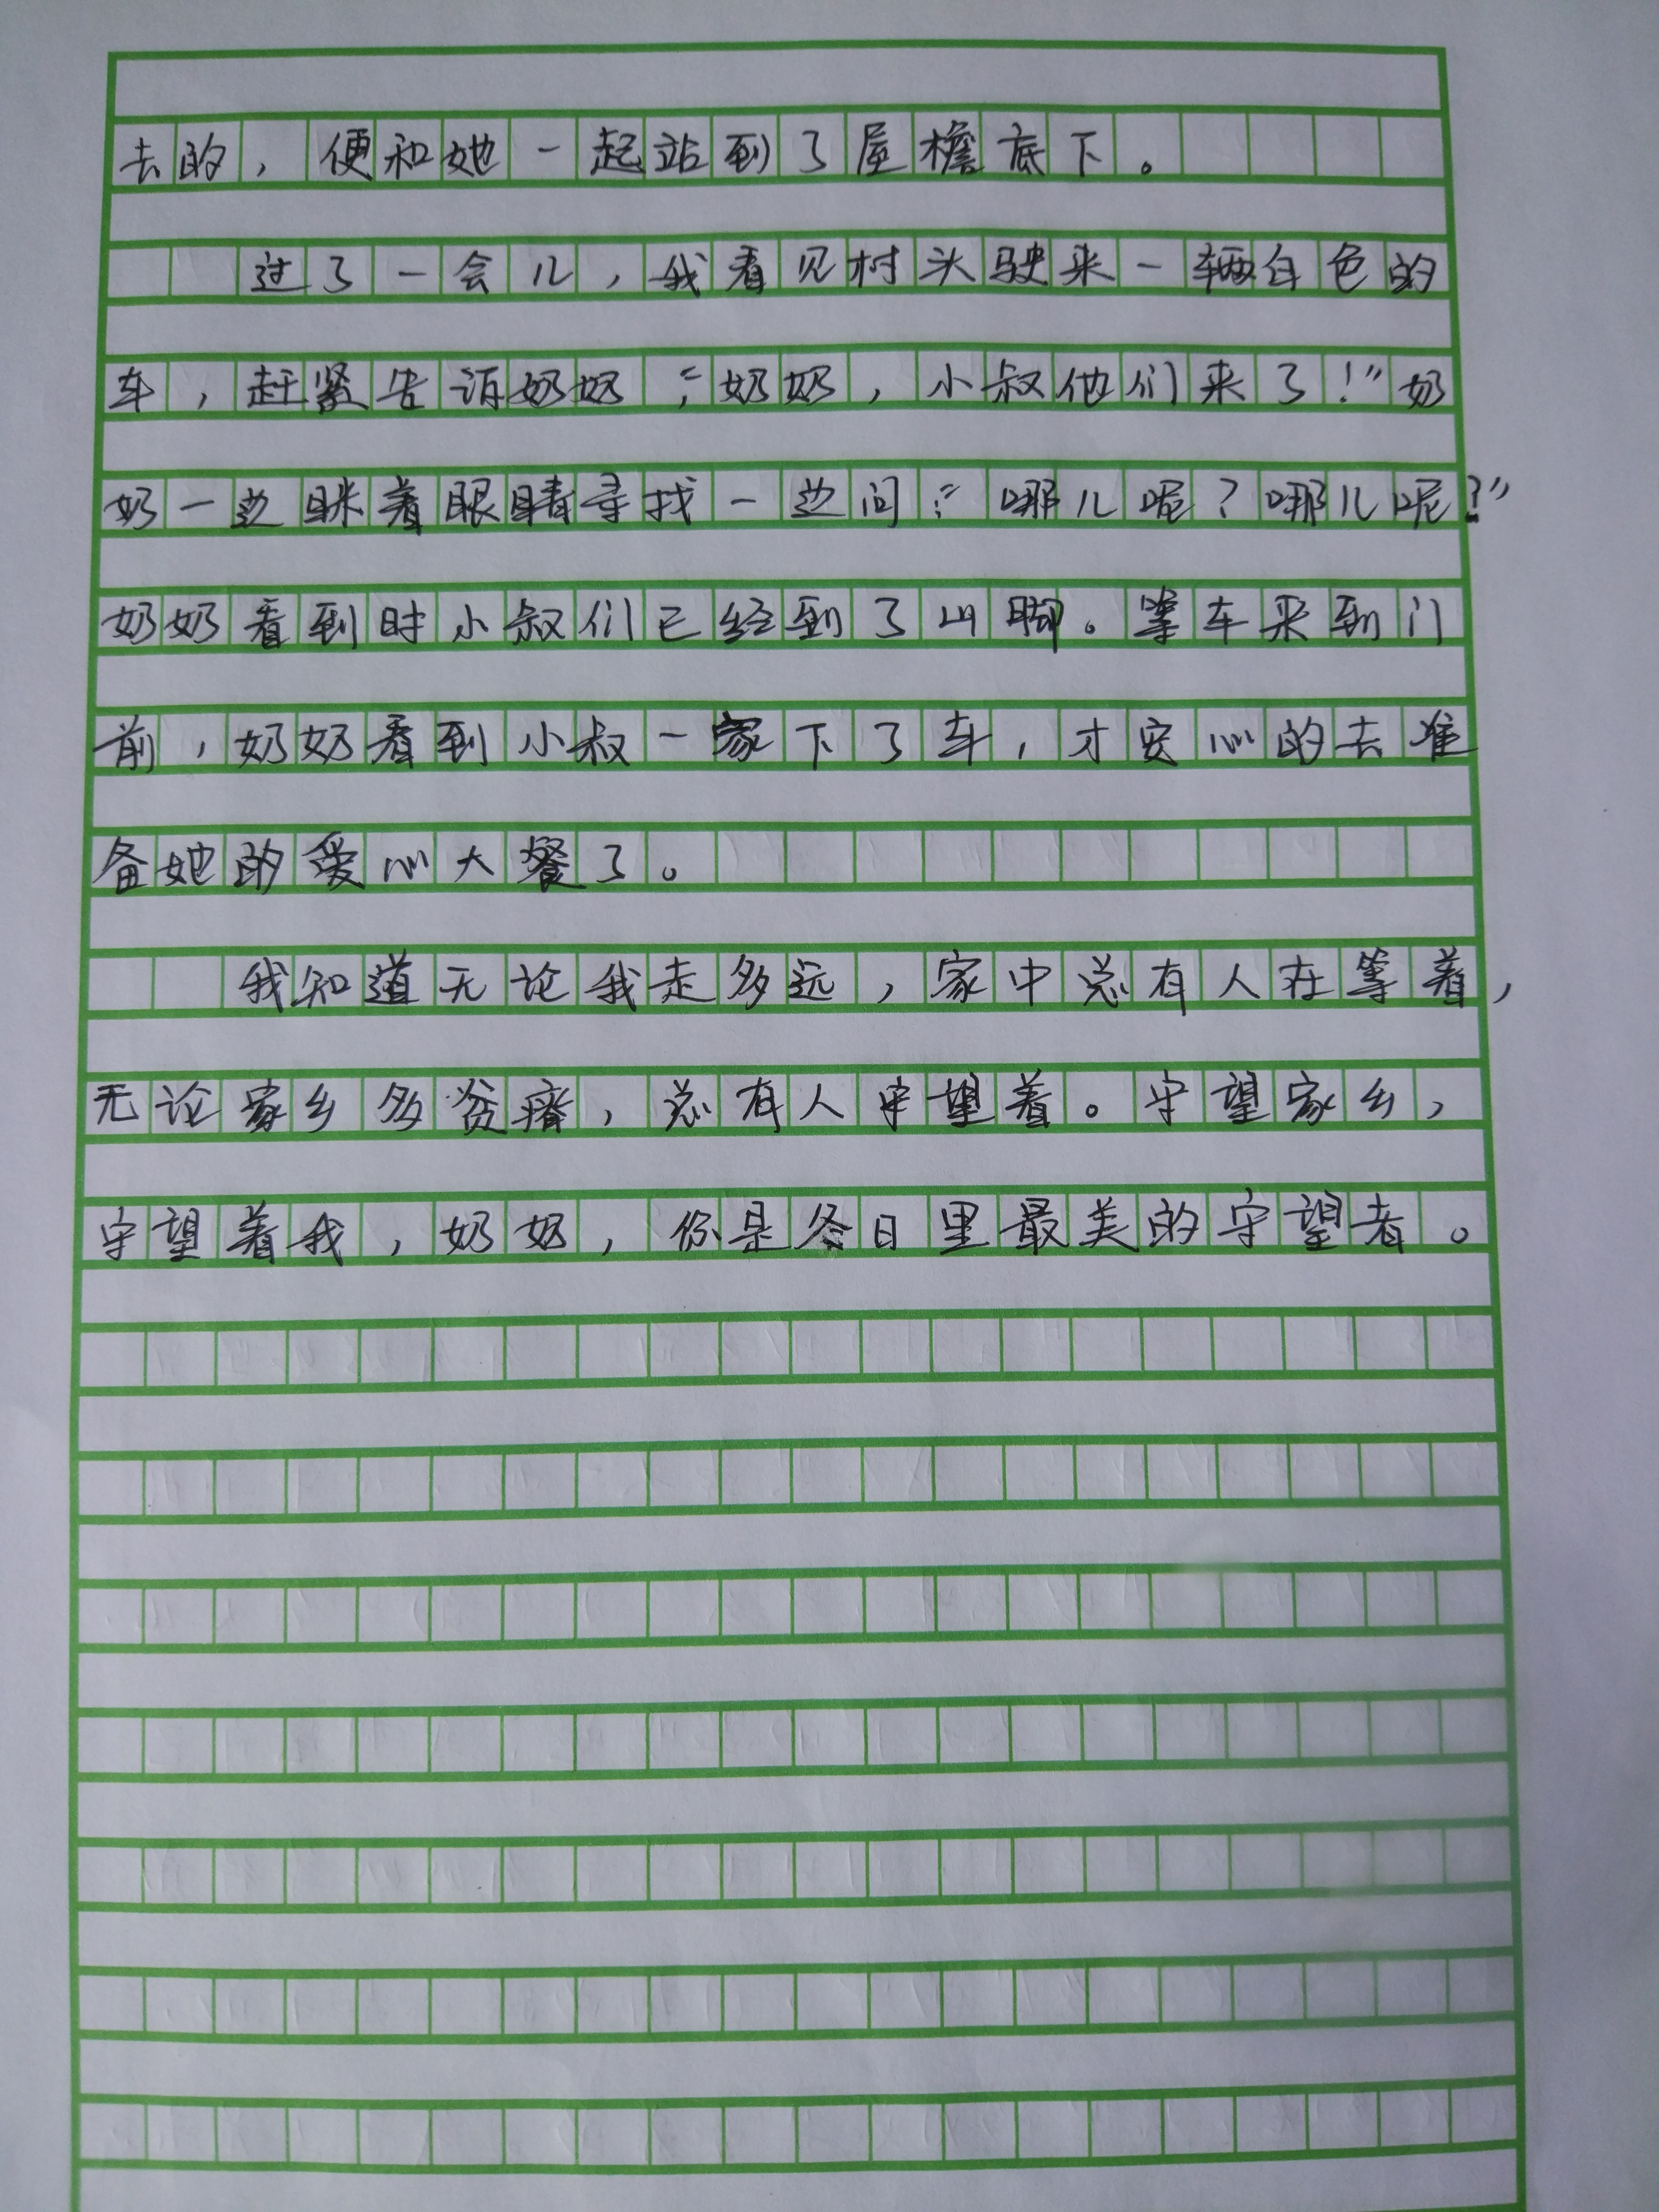 去的，便和她一起站到了屋檐底下。
过了一会儿，我看见村头驶来一辆白色的
车，赶紧告诉奶奶：“奶奶，小叔他们来了！”奶
奶一边眯着眼睛寻找一边问：“哪儿呢？哪儿呢？”
奶奶看到时小叔们已经到了山脚。等车来到门
前，奶奶看到小叔一家下了车，才安心的去准
备她的爱心大餐了。
我知道无论我走多远，家中总有人在等着，
无论家乡多贫瘠，总有人守望着。守望家乡，
守望着我，奶奶，你是冬日里最美的守望者。